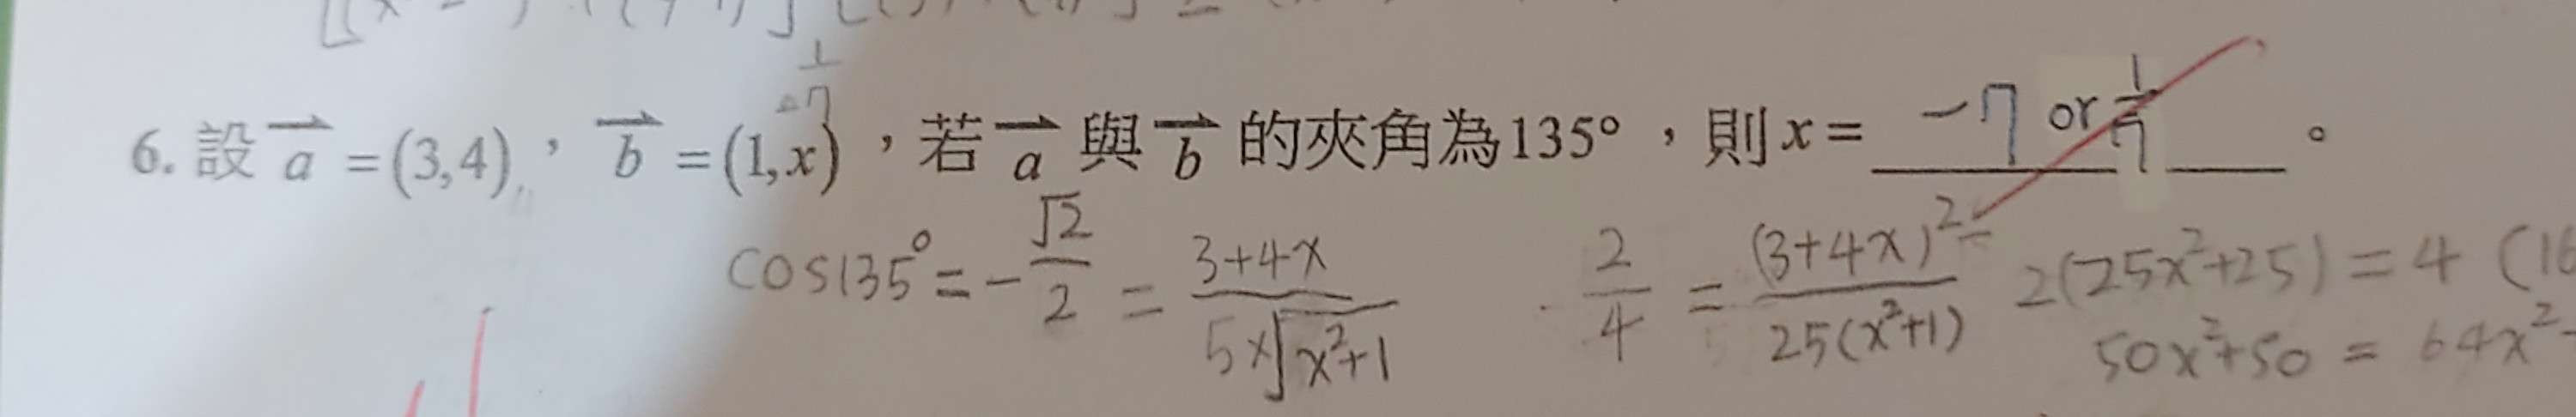 1
-7
6. 設 a = (3,4), b = (1,x),若 a 與 b 的夾角為135°,則x = -7 or 1/7 。
cos135° = -√2/2 = 3+4x / 5×√x²+1   2/4 = (3+4x)² / 25(x²+1)   2(25x²+25) = 4(16
50x²+50 = 64x²